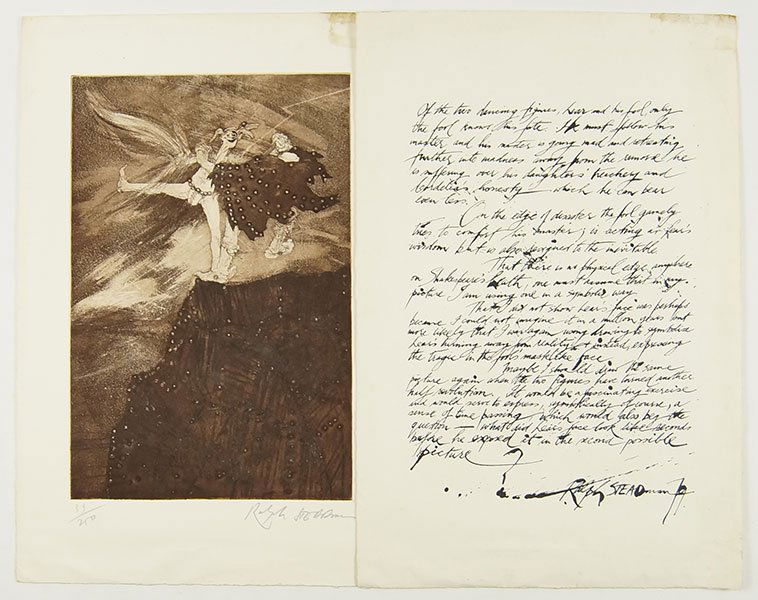 Of the two dancing figures, Lear and his fool, only
the fool knows his fate. He must follow his
master and his master is going mad and retreating
further into madness away from the remorse he
is suffering over his daughters treachery and
Cordelia's honesty — which he can bear
even less.
On the edge of disaster the fool gamely
tries to comfort his master, is acting as Lear's
wisdom but is also resigned to the inevitable.
That there is no physical edge anywhere
on Shakespeare's heath, one must assume that in any
picture I am using one in a symbolic way.
That I did not show Lear's face was perhaps
because I could not imagine it in a million years but
more likely that I was again using drawing to symbolise
Lear's turning away from reality & instead, expressing
the tragedy in the fool's masklike face.
Maybe I should draw the same
picture again when the two figures have turned another
half revolution. It would be a fascinating exercise
and would serve to express, symbolically of course, a
sense of time passing which would also beg the
question — what did Lear's face look like seconds
before he exposed it in the second possible
picture?
Ralph STEADman
/250
Ralph STEADman